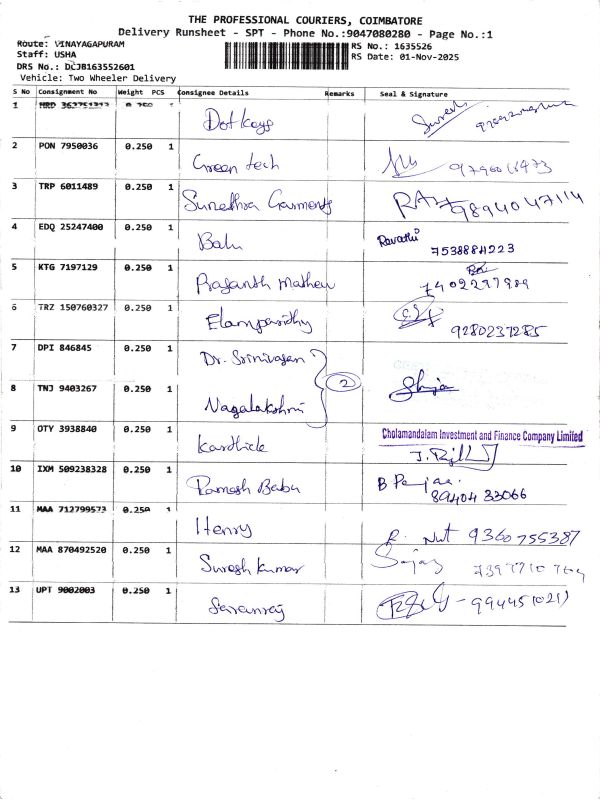 THE PROFESSIONAL COURIERS, COIMBATORE
Delivery Runsheet - SPT - Phone No.:9047080280 - Page No.:1
Route: VINAYAGAPURAM
RS No.: 1635526
Staff: USHA
RS Date: 01-Nov-2025
DRS No.: DCJB163552601
Vehicle: Two Wheeler Delivery
S No Consignment No Weight PCS Consignee Details Remarks Seal & Signature
1 0.250 1 Dot Keys Suresh
2 PON 7950036 0.250 1 Green tech
3 TRP 6011489 0.250 1 Sunethra Garments 9894047114
4 EDQ 25247400 0.250 1 Balu Revathi 7538884223
5 KTG 7197129 0.250 1 Prasanth Mathew 7402297989
6 TRZ 150760327 0.250 1 Elamparithy 9280237285
7 DPI 846845 0.250 1 Dr. Srinivasan
2
8 TNJ 9403267 0.250 1 Nagalakshmi
9 OTY 3938840 0.250 1 Karthick Cholamandalam Investment and Finance Company Limited
10 IXM 509238328 0.250 1 Ramesh Babu 89404 33066
11 MAA 712799573 0.250 1 Henry 9360755387
12 MAA 870492520 0.250 1 Suresh Kumar
13 UPT 9002003 0.250 1 Saranraj